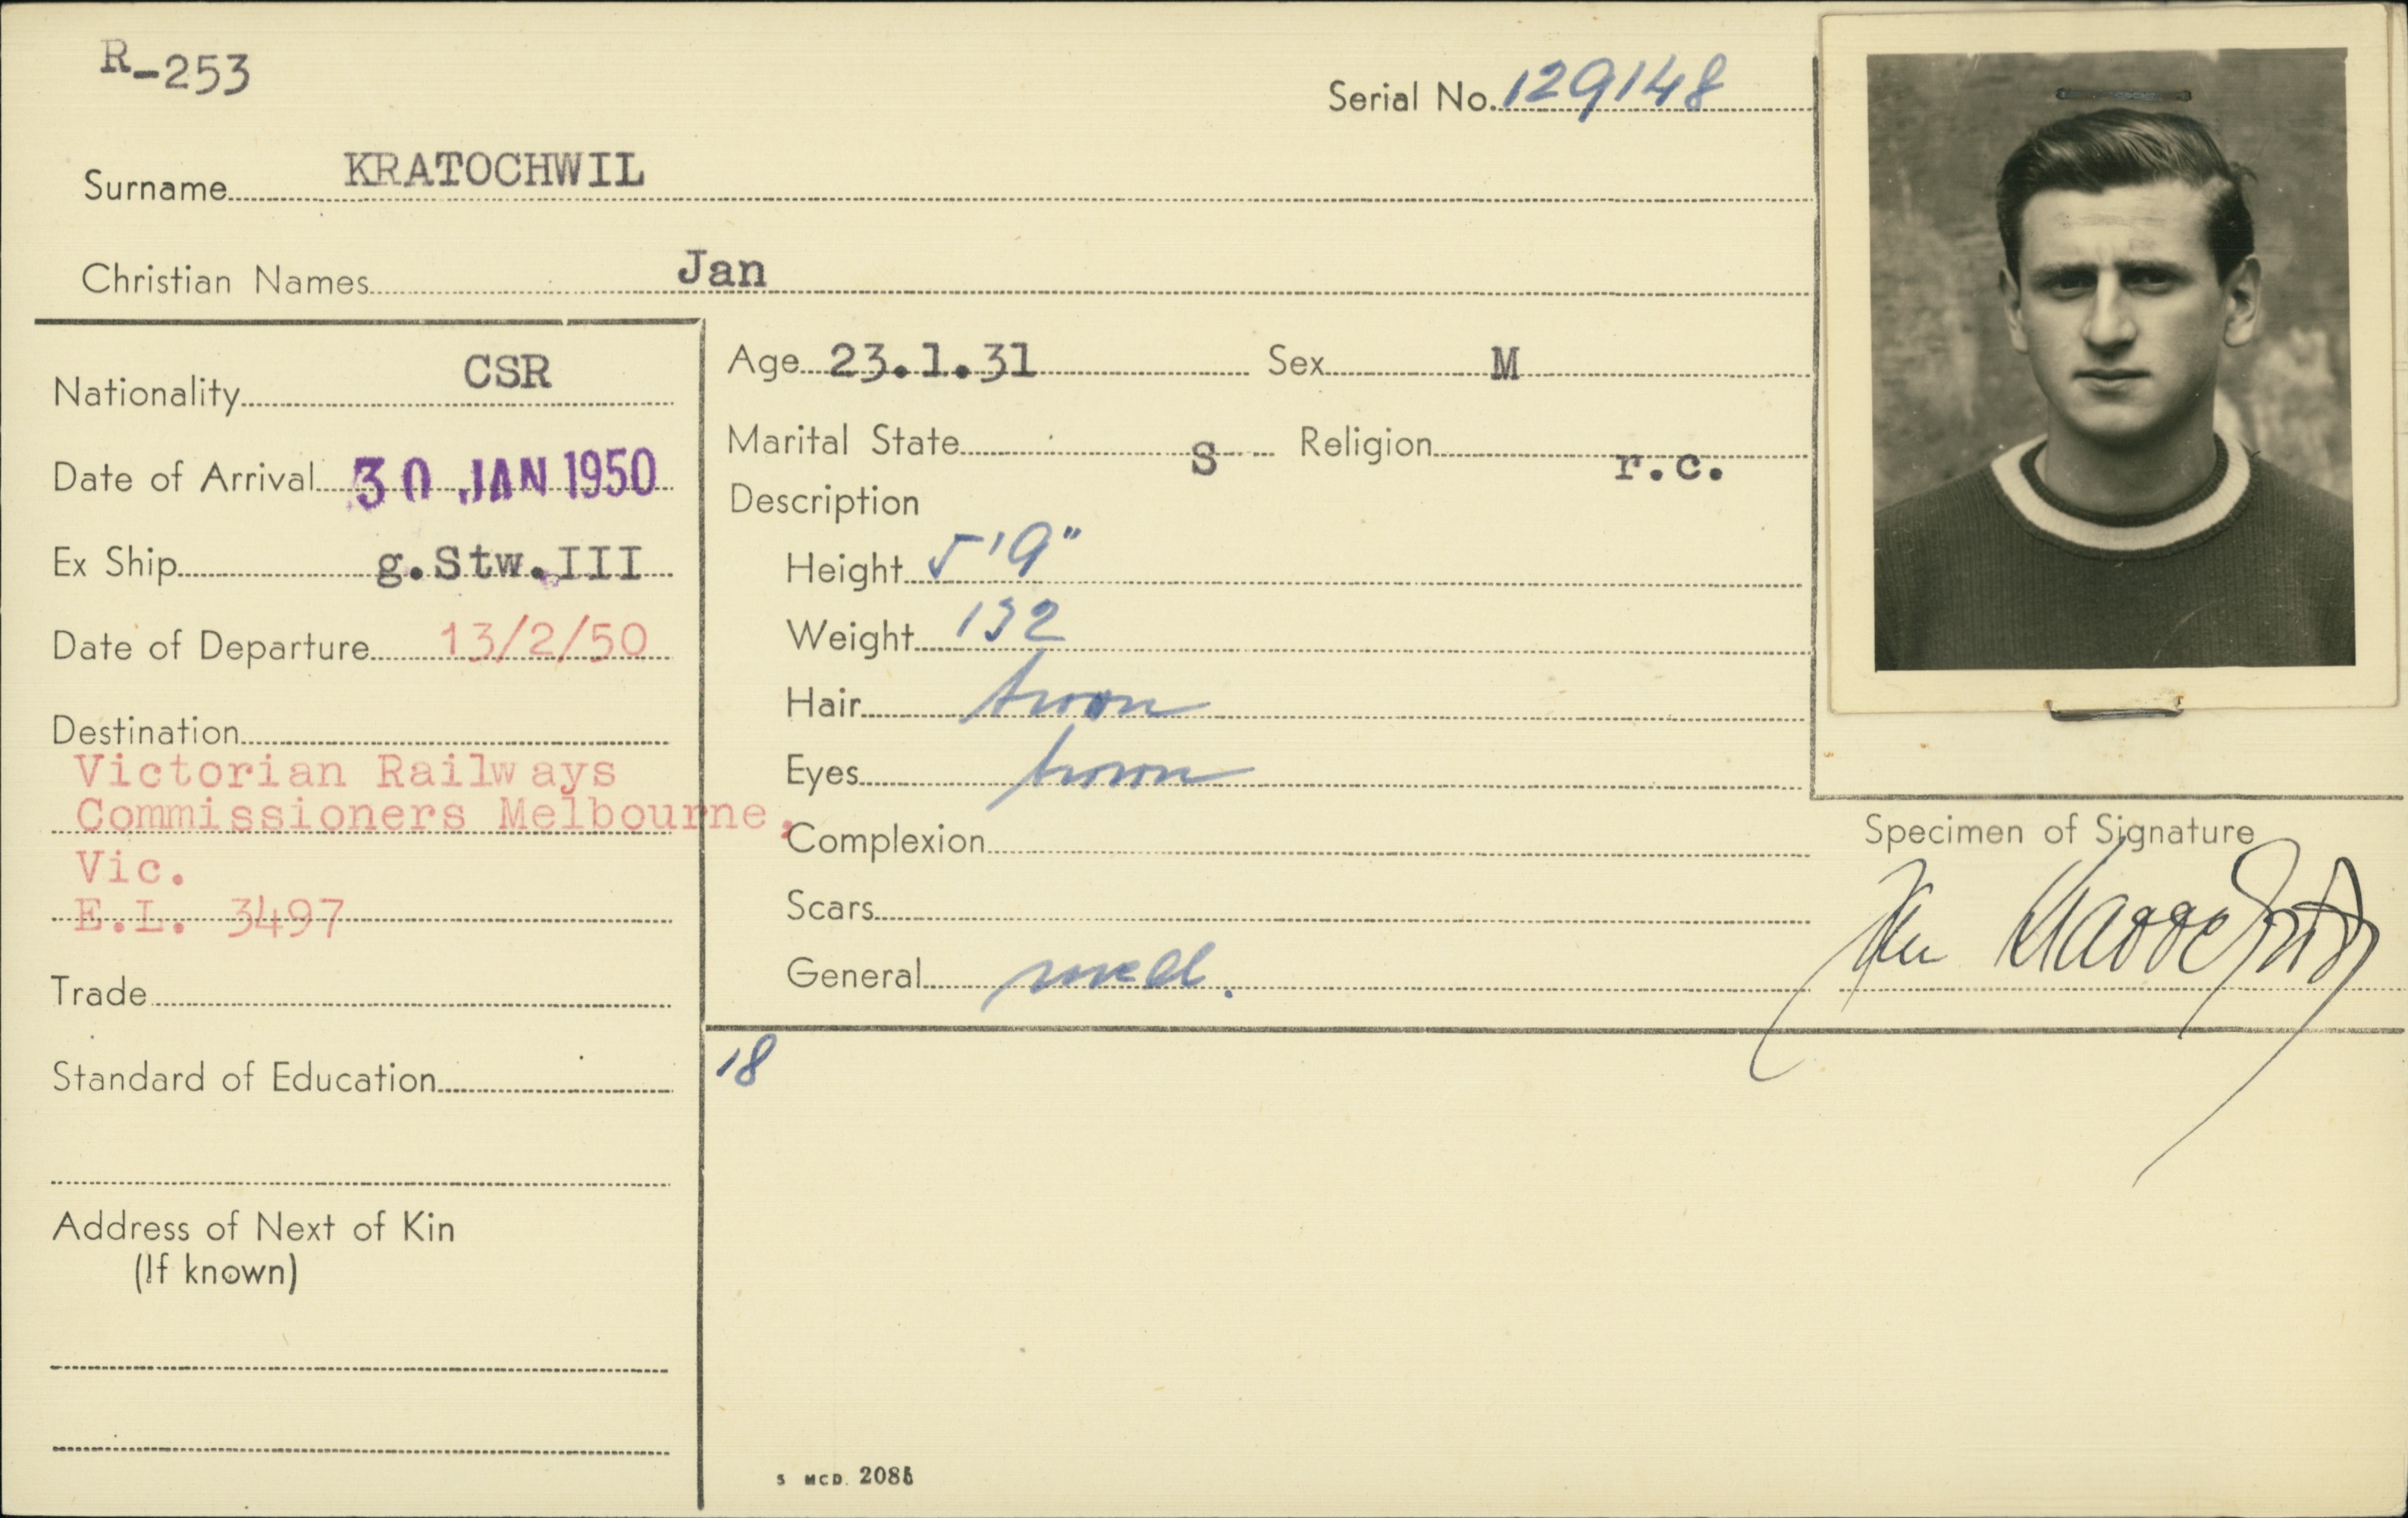 R-253
Serial No. 129148
Surname KRATOCHWIL
Christian Names Jan
Nationality CSR
Date of Arrival 30 JAN 1950
Ex Ship g.Stw.III
Date of Departure 13/2/50
Destination
Victorian Railways
Commissioners Melbourne,
Vic.
E.L. 3497
Trade
Standard of Education
Address of Next of Kin
(If known)
Age 23.1.31 Sex M
Marital State S Religion r.c.
Description
Height 5'9"
Weight 132
Hair brown
Eyes brown
Complexion
Scars
General well.
18
S MCD. 2085
Specimen of Signature
Jan